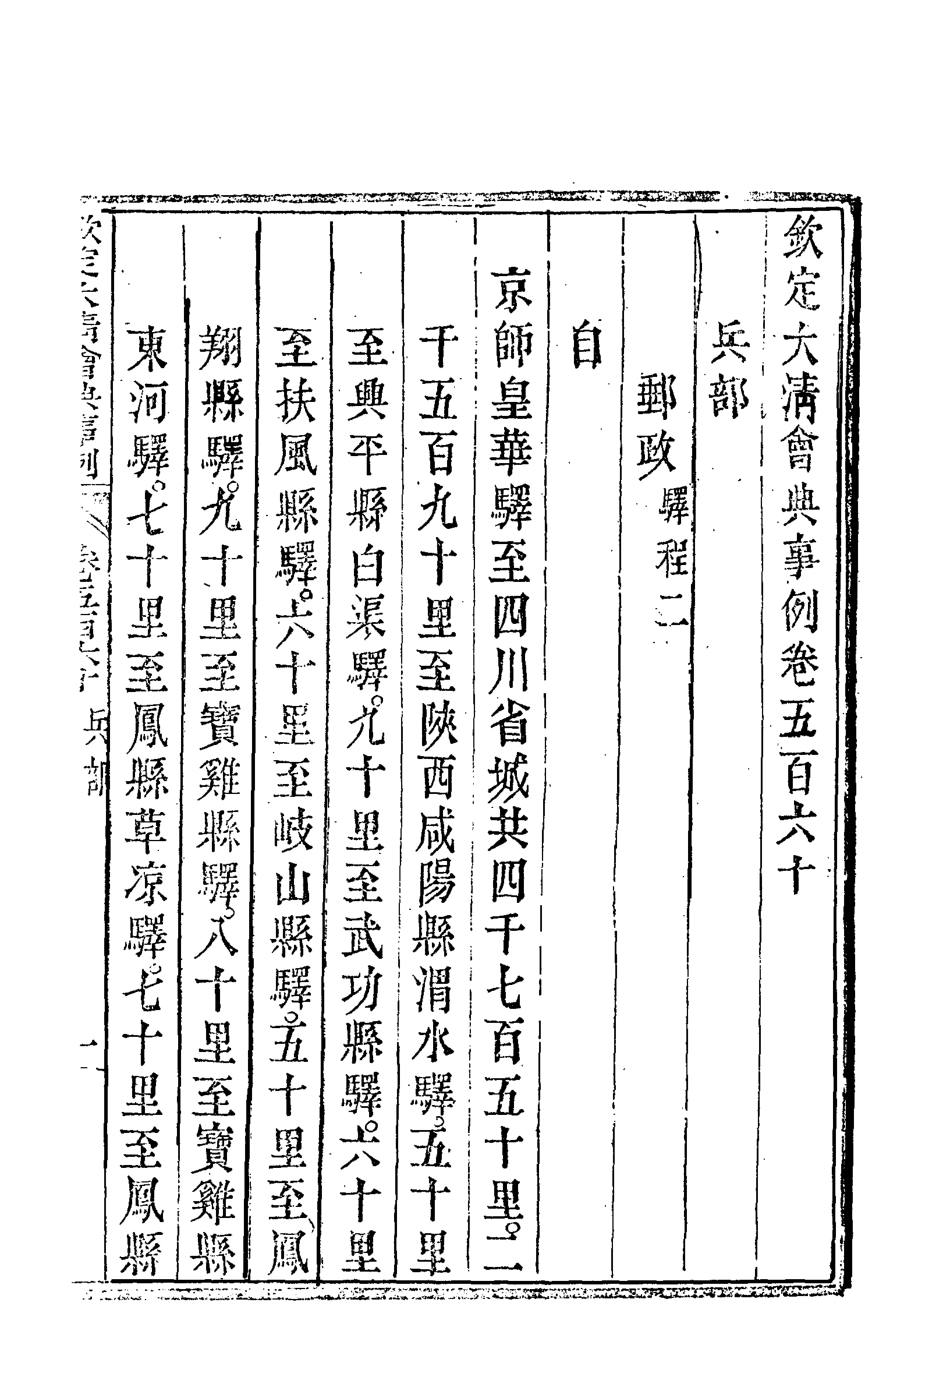 欽定大清會典事例卷五百六十
兵部
郵政驛程二
自
京師皇華驛至四川省城共四千七百五十里。二
千五百九十里至陝西咸陽縣渭水驛。五十里
至興平縣白渠驛。九十里至武功縣驛。六十里
至扶風縣驛。六十里至岐山縣驛。五十里至鳳
翔縣驛。九十里至寶雞縣驛。八十里至寶雞縣
東河驛。七十里至鳳縣草凉驛。七十里至鳳縣
欽定大清會典事例 卷五百六十 兵部 一